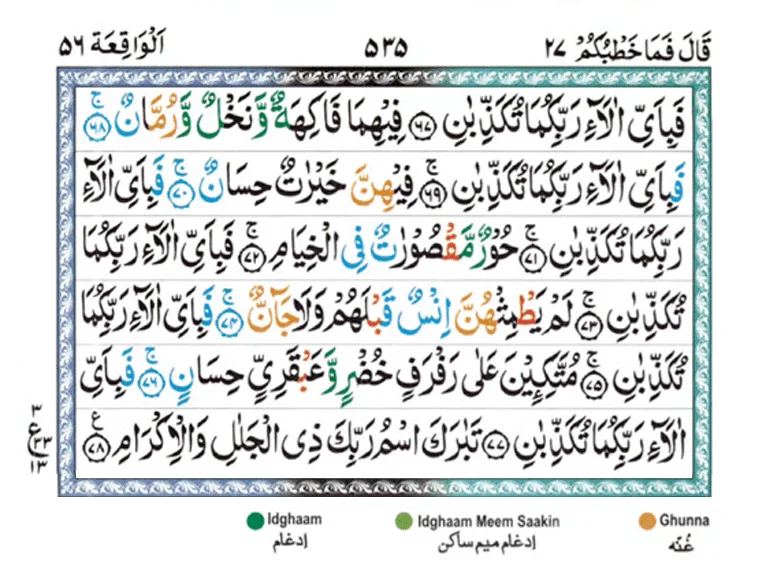 قَالَ فَمَا خَطْبُكُمْ ٢٧ ٥٣٥ اَلْوَاقِعَة ٥٦
فَبِاَىِّ اٰلَآءِ رَبِّكُمَا تُكَذِّبٰنِ ﴿٦٧﴾ فِيْهِمَا فَاكِهَةٌ وَّنَخْلٌ وَّرُمَّانٌ ۚ﴿٦٨﴾
فَبِاَىِّ اٰلَآءِ رَبِّكُمَا تُكَذِّبٰنِ ۚ﴿٦٩﴾ فِيْهِنَّ خَيْرٰتٌ حِسَانٌ ۚ﴿٧٠﴾ فَبِاَىِّ اٰلَآءِ
رَبِّكُمَا تُكَذِّبٰنِ ۚ﴿٧١﴾ حُوْرٌ مَّقْصُوْرٰتٌ فِى الْخِيَامِ ۚ﴿٧٢﴾ فَبِاَىِّ اٰلَآءِ رَبِّكُمَا
تُكَذِّبٰنِ ۚ﴿٧٣﴾ لَمْ يَطْمِثْهُنَّ اِنْسٌ قَبْلَهُمْ وَلَا جَآنٌّ ۚ﴿٧٤﴾ فَبِاَىِّ اٰلَآءِ رَبِّكُمَا
تُكَذِّبٰنِ ۚ﴿٧٥﴾ مُتَّكِـِٕيْنَ عَلٰى رَفْرَفٍ خُضْرٍ وَّعَبْقَرِىٍّ حِسَانٍ ۚ﴿٧٦﴾ فَبِاَىِّ
اٰلَآءِ رَبِّكُمَا تُكَذِّبٰنِ ﴿٧٧﴾ تَبٰرَكَ اسْمُ رَبِّكَ ذِى الْجَلٰلِ وَالْاِكْرَامِ ﴿٧٨﴾ ع
٣
ع ٣٣
١٣
Idghaam Idghaam Meem Saakin Ghunna
إدغام إدغام ميم ساكن غُنّه